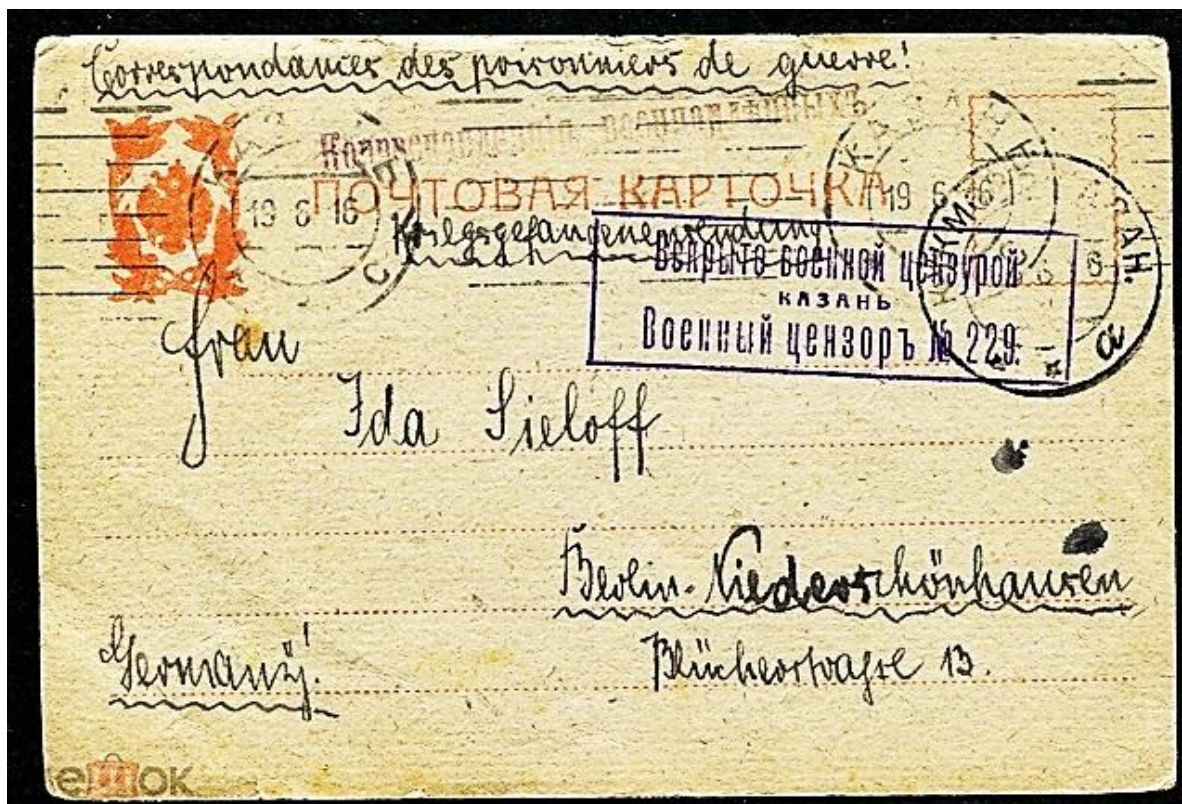 Correspondances des prisonniers de guerre!
Корреспонденція военноплѣнныхъ
ПОЧТОВАЯ КАРТОЧКА
19 6 16
19 6 16
Kriegsgefangenensendung
Вскрыто военной цензурой
КАЗАНЬ
Военный цензоръ № 229.
Frau
Ida Sieloff
Berlin-Niederschönhausen
Germany!
Blücherstrasse 13.
ешок